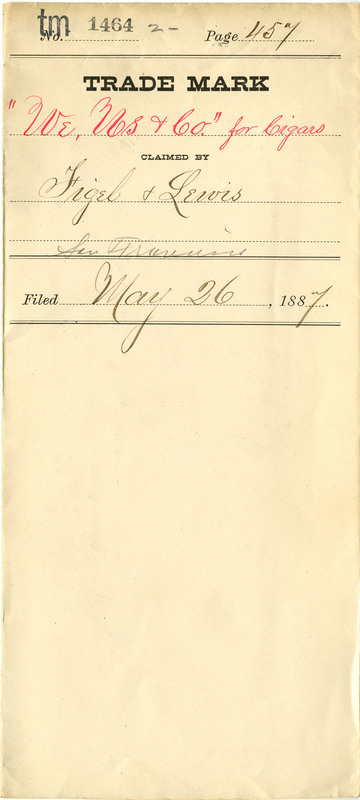 tm
No. 1464 2- Page 457
TRADE MARK
"We, Us & Co." for Cigars
CLAIMED BY
Figel & Lewis
San Francisco
Filed May 26, 1887.